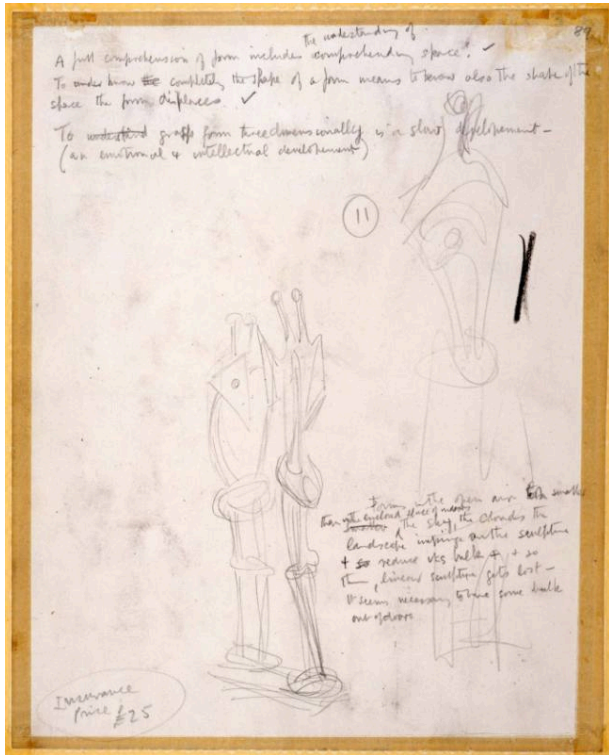 89
the understanding of
A full comprehension of form includes comprehending space. ✓
To under know the completely the shape of a form means to know also the shape of the
space the form displaces. ✓
To understand grasp form threedimensionally is a slow developement -
(an emotional & intellectual developement)
11
Forms in the open air look smaller
than in the enclosed place of
smaller the sky, the clouds the
landscape impinge on the sculpture
& so reduce its bulk & so
thin, linear sculpture gets lost -
It seems necessary to have some bulk
out of doors
Insurance
Price £
£25